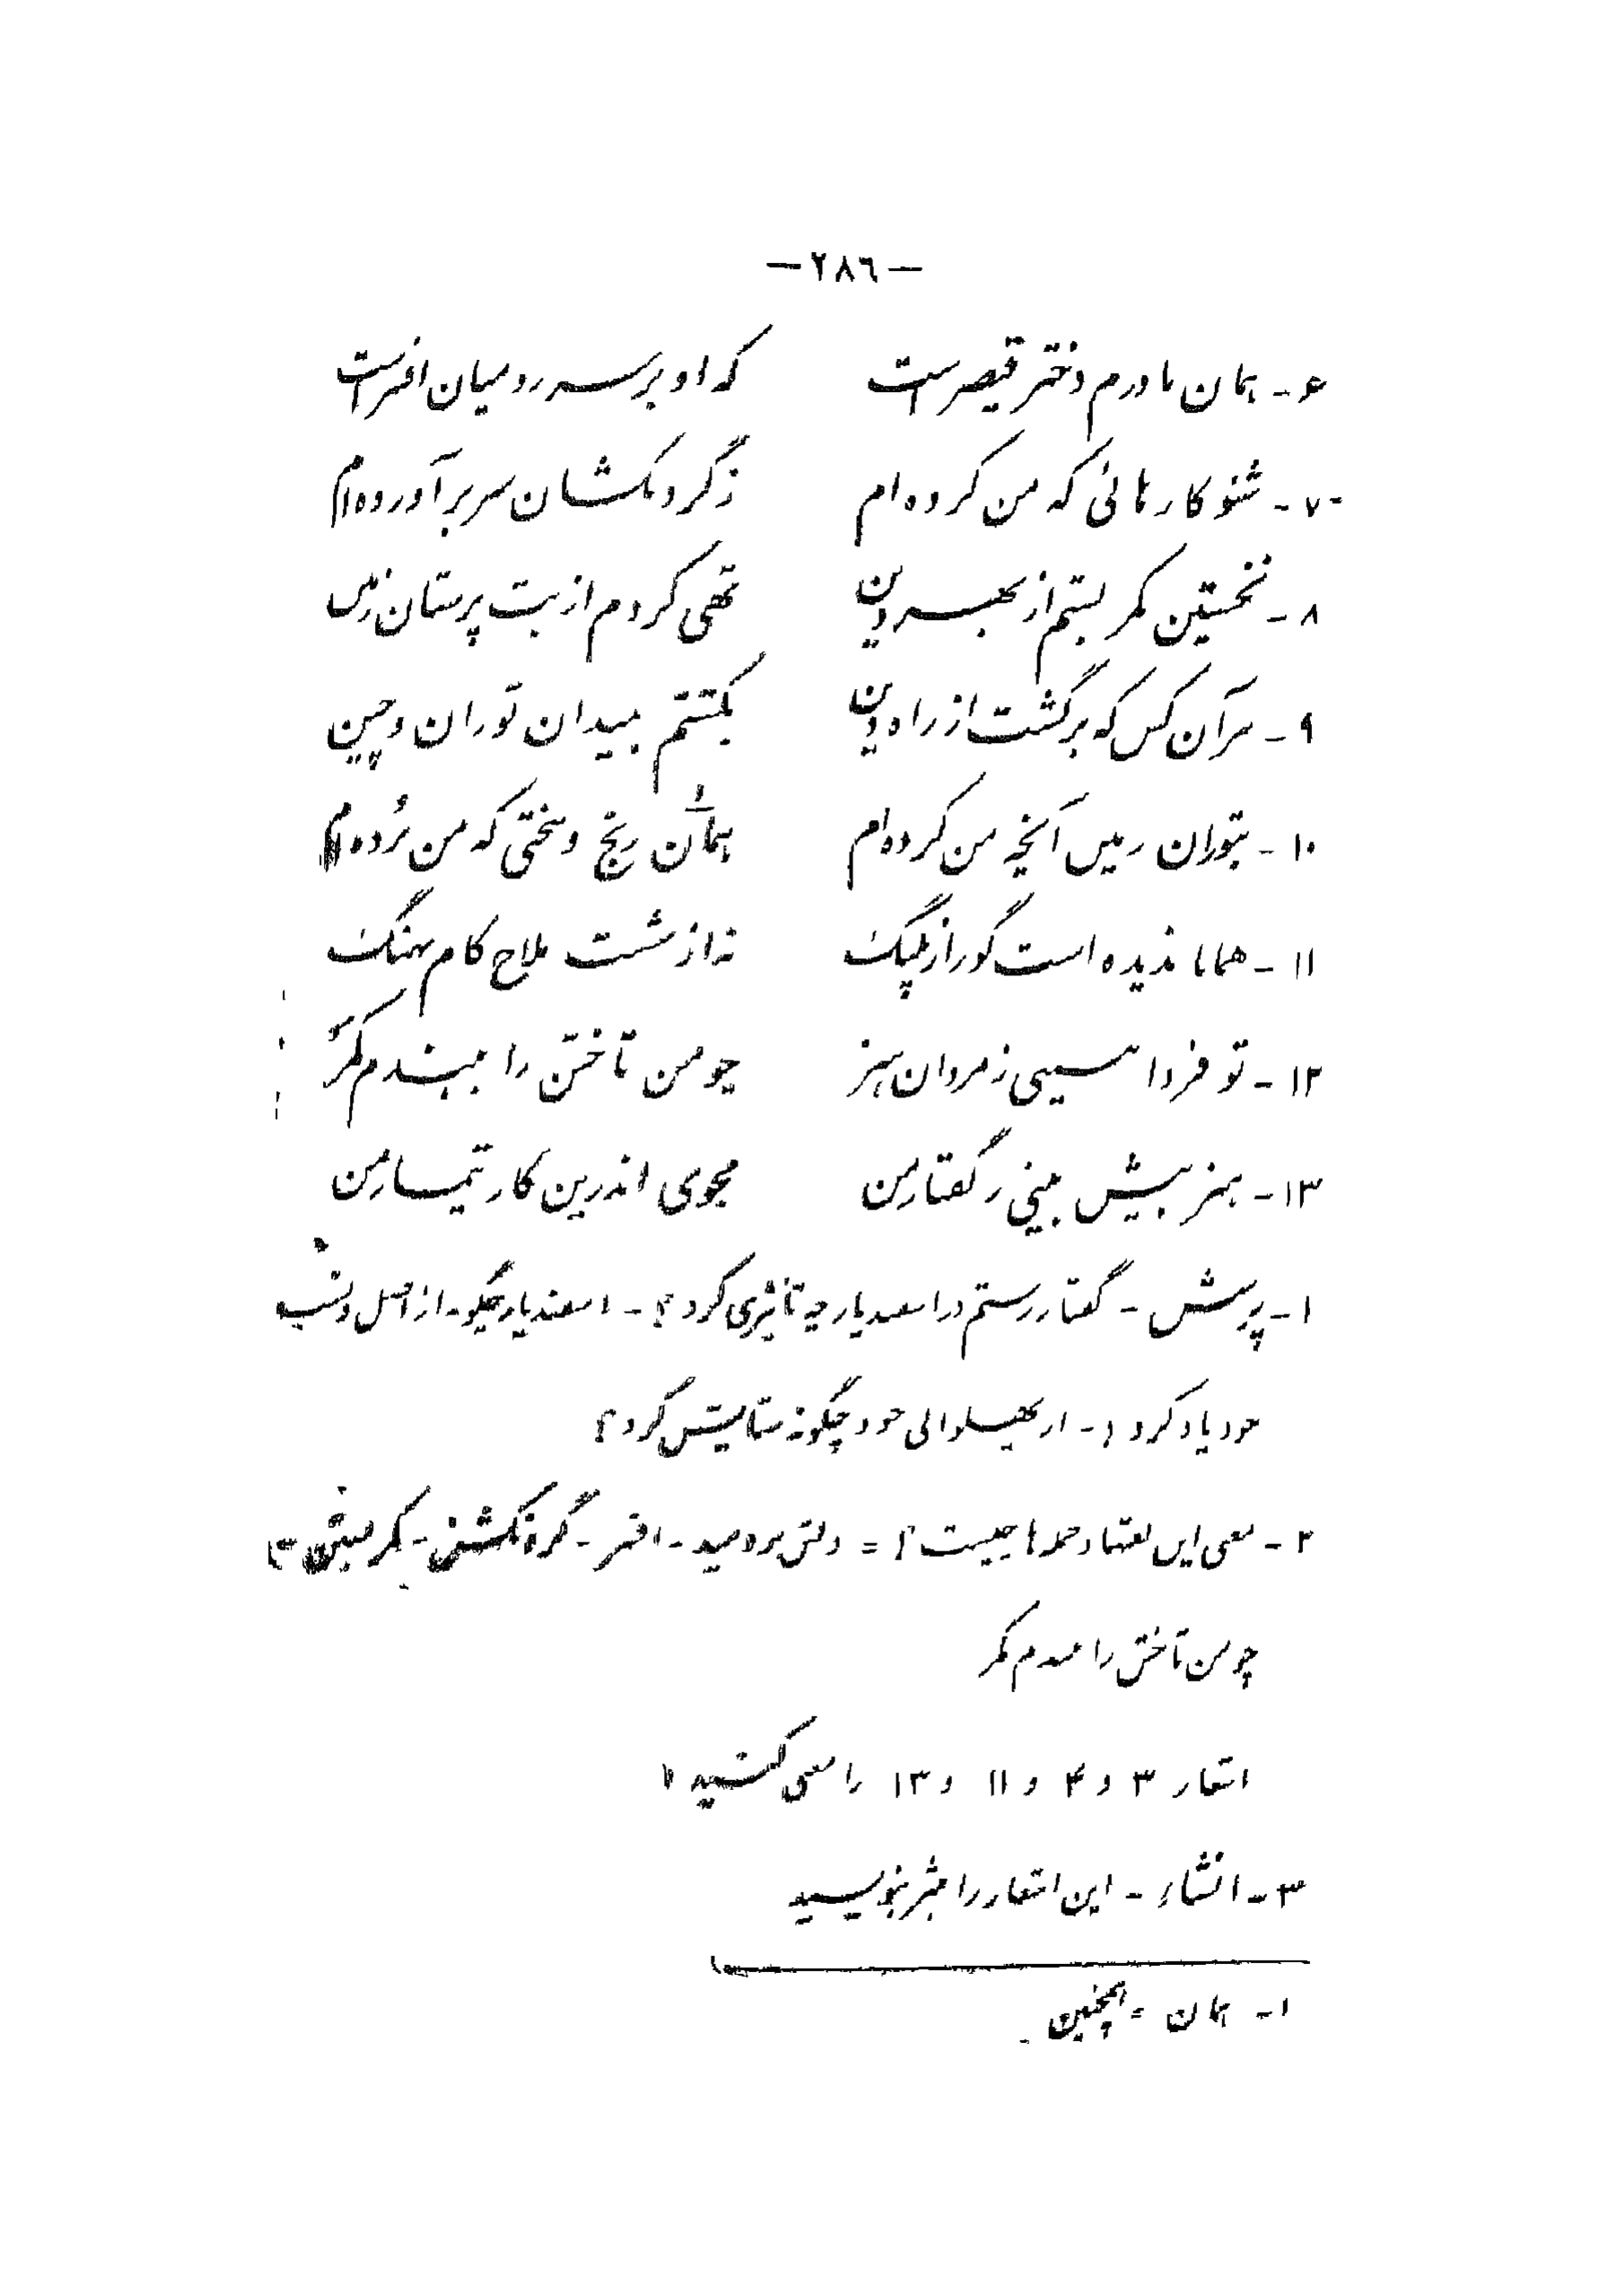 —۲۸٦—
۶- همان مادرم دختر قیصر است که او بر سر رومیان افسر است
۷- شنو کارهائی که من کرده‌ام ز گردنکشان سر برآورده‌ام
۸- نخستین کمر بستم از بهر دین تهی کردم از بت پرستان زمین
۹- هر آن کس که برگشت از راه دین بکشتم بمیدان توران و چین
۱۰- بتوران زمین آنچه من کرده‌ام همان¹ رنج و سختی که من بُرده‌ام
۱۱- همانا ندیده است گور از پلنگ نه از شست ملاح کام نهنگ
۱۲- تو فردا ببینی ز مردان هنر چو من تاختن را ببندم کمر
۱۳- هنر بیش بینی ز گفتار من مجوی اندرین کار تیمار من
۱- پرسش - گفتار رستم در اسفندیار چه تأثیری کرد؟ - اسفندیار چگونه از اصل و نسب
خود یاد کرد؟ - از پهلوانی خود چگونه ستایش کرد؟
۲- معنی این لغتها و جمله‌ها چیست؟ = دلش بردمید - افسر - گردنکشی - کمر بستن
چو من تاختن را ببندم کمر
اشعار ۳ و ۴ و ۱۱ و ۱۳ را معنی کنید؟
۳- انشاء - این اشعار را بنثر بنویسید
۱- همان = همچنین